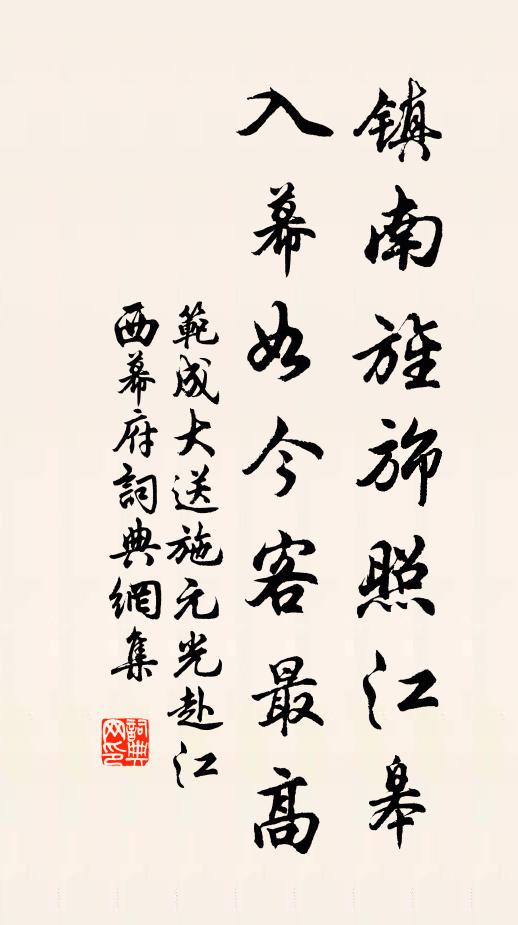 镇南旌旆照江皋
入幕如今客最高
範成大送施元光赴江
西幕府詞典網集
詞典网印